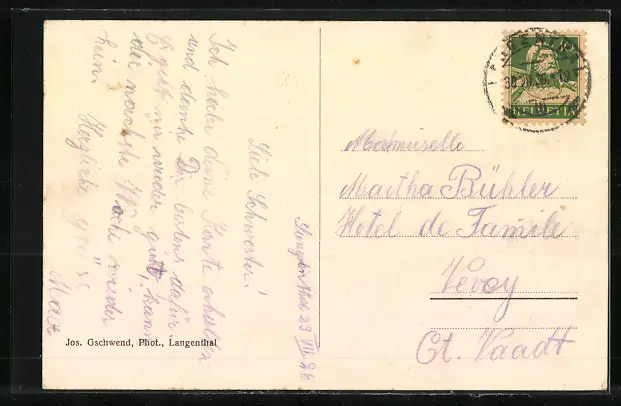 Langenthal 29 VII 26
Liebe Schwester!
Ich habe deine Karte erhalten
und danke Dir bestens dafür.
Es geht mir wieder gut, kann
die nächste Woche wieder
heim. Herzliche Grüsse
Max
Jos. Gschwend, Phot., Langenthal
HELVETIA
Mademoiselle
Martha Bühler
Hotel de Famile
Vevey
Ct. Vaadt